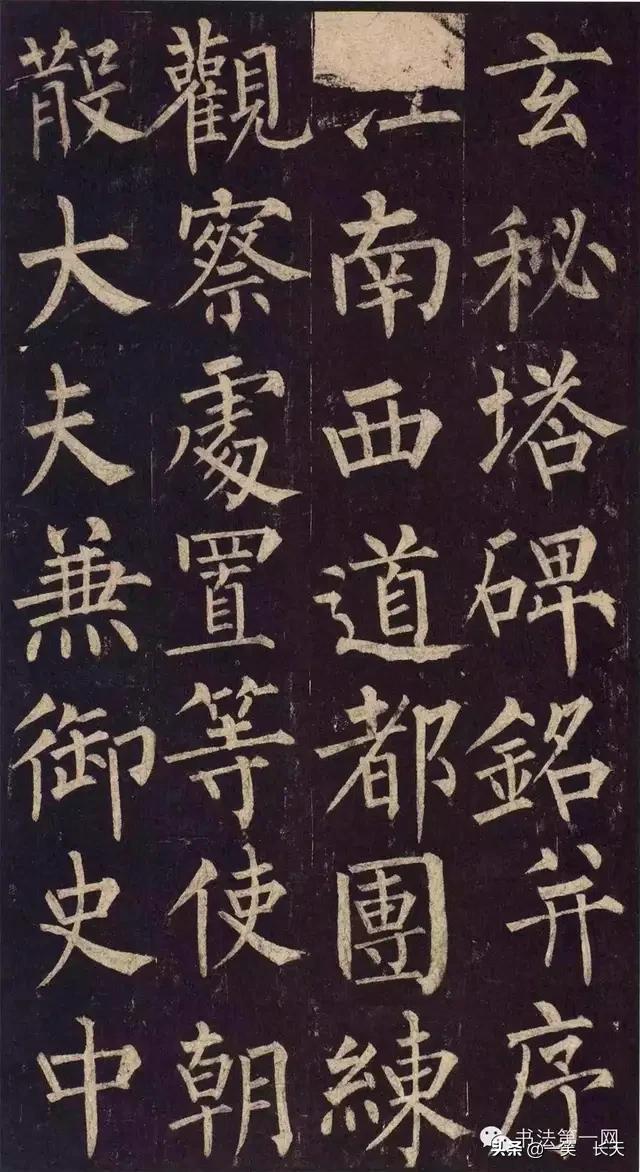 玄秘塔碑銘并序
南西道都團練
觀察處置等使朝
散大夫兼御史中
书法第一网
头条@一笑 长天